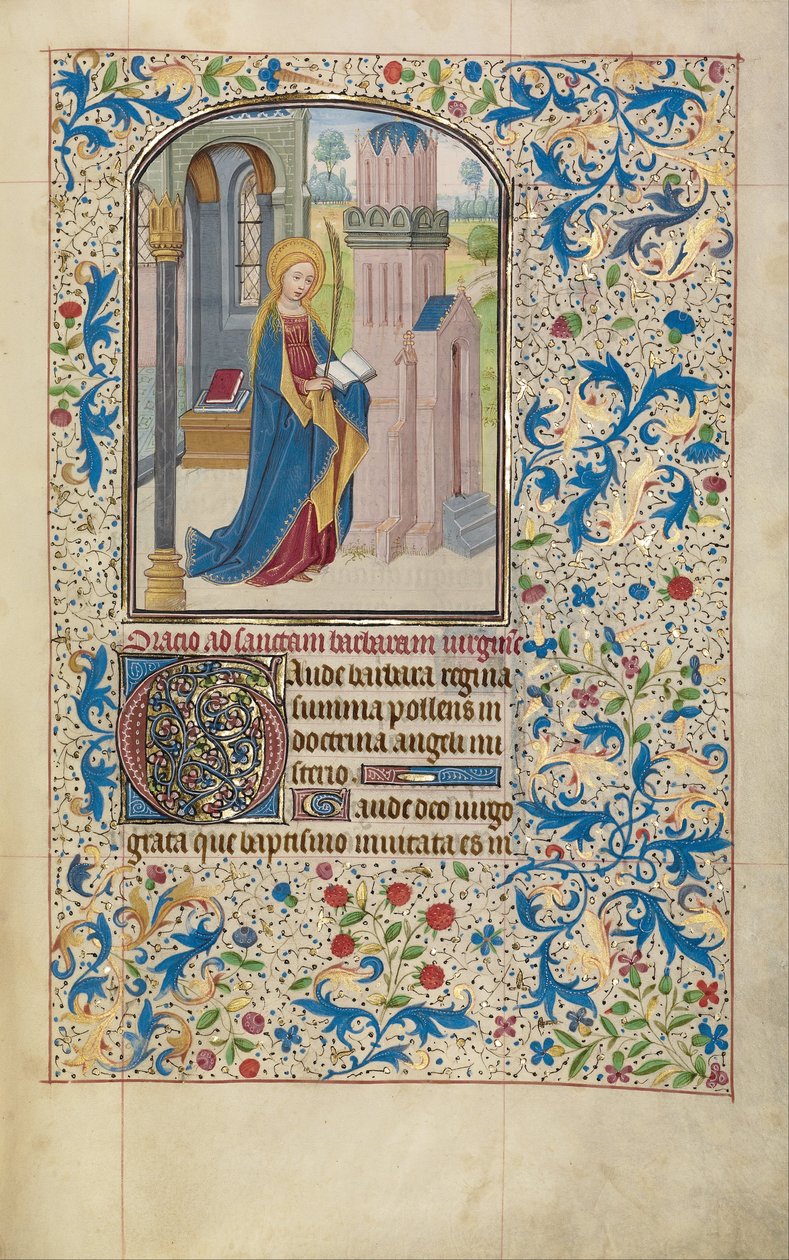 Oratio ad sanctam barbaram uirginē
Gaude barbara regina
summa pollens in
doctrina angeli mi
sterio
Gaude deo uirgo
grata que baptismo inuitata es in